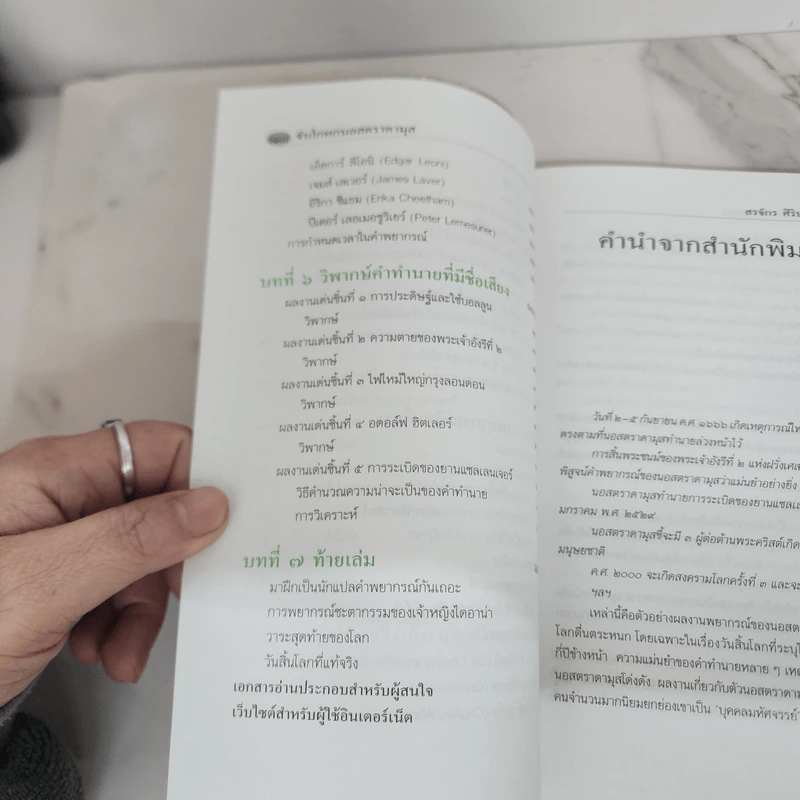 จับโกหกนอสตราดามุส
เอ็ดการ์ ลีโอนี (Edgar Leoni)
เจมส์ เลเวอร์ (James Laver)
อีริกา ชีแธม (Erika Cheetham)
ปีเตอร์ เลอเมอซูริเยร์ (Peter Lemesurier)
การกำหนดเวลาในคำพยากรณ์
บทที่ ๖ วิพากษ์คำทำนายที่มีชื่อเสียง
ผลงานเด่นชิ้นที่ ๑ การประดิษฐ์และใช้บอลลูน
วิพากษ์
ผลงานเด่นชิ้นที่ ๒ ความตายของพระเจ้าอังรีที่ ๒
วิพากษ์
ผลงานเด่นชิ้นที่ ๓ ไฟไหม้ใหญ่กรุงลอนดอน
วิพากษ์
ผลงานเด่นชิ้นที่ ๔ อดอล์ฟ ฮิตเลอร์
วิพากษ์
ผลงานเด่นชิ้นที่ ๕ การระเบิดของยานแชลเลนเจอร์
วิธีคำนวณความน่าจะเป็นของคำทำนาย
การวิเคราะห์
บทที่ ๗ ท้ายเล่ม
มาฝึกเป็นนักแปลคำพยากรณ์กันเถอะ
การพยากรณ์ชะตากรรมของเจ้าหญิงไดอาน่า
วาระสุดท้ายของโลก
วันสิ้นโลกที่แท้จริง
เอกสารอ่านประกอบสำหรับผู้สนใจ
เว็บไซต์สำหรับผู้ใช้อินเตอร์เน็ต
สรจักร ศิริบ
คำนำจากสำนักพิม
วันที่ ๒-๕ กันยายน ค.ศ. ๑๖๖๖ เกิดเหตุการณ์ไฟ
ตรงตามที่นอสตราดามุสทำนายล่วงหน้าไว้
การสิ้นพระชนม์ของพระเจ้าอังรีที่ ๒ แห่งฝรั่งเศส
พิสูจน์คำพยากรณ์ของนอสตราดามุสว่าแม่นยำอย่างยิ่ง
นอสตราดามุสทำนายการระเบิดของยานแชลเล
มกราคม พ.ศ. ๒๕๒๙
นอสตราดามุสชี้จะมี ๓ ผู้ต่อต้านพระคริสต์เกิด
มนุษยชาติ
ค.ศ. ๒๐๐๐ จะเกิดสงครามโลกครั้งที่ ๓ และจะ
ฯลฯ
เหล่านี้คือตัวอย่างผลงานพยากรณ์ของนอสตร
โลกตื่นตระหนก โดยเฉพาะในเรื่องวันสิ้นโลกที่ระบุไ
กี่ปีข้างหน้า ความแม่นยำของคำทำนายหลาย ๆ เหต
นอสตราดามุสโด่งดัง ผลงานเกี่ยวกับตัวนอสตราดาม
คนจำนวนมากนิยมยกย่องเขาเป็น "บุคคลมหัศจรรย์"